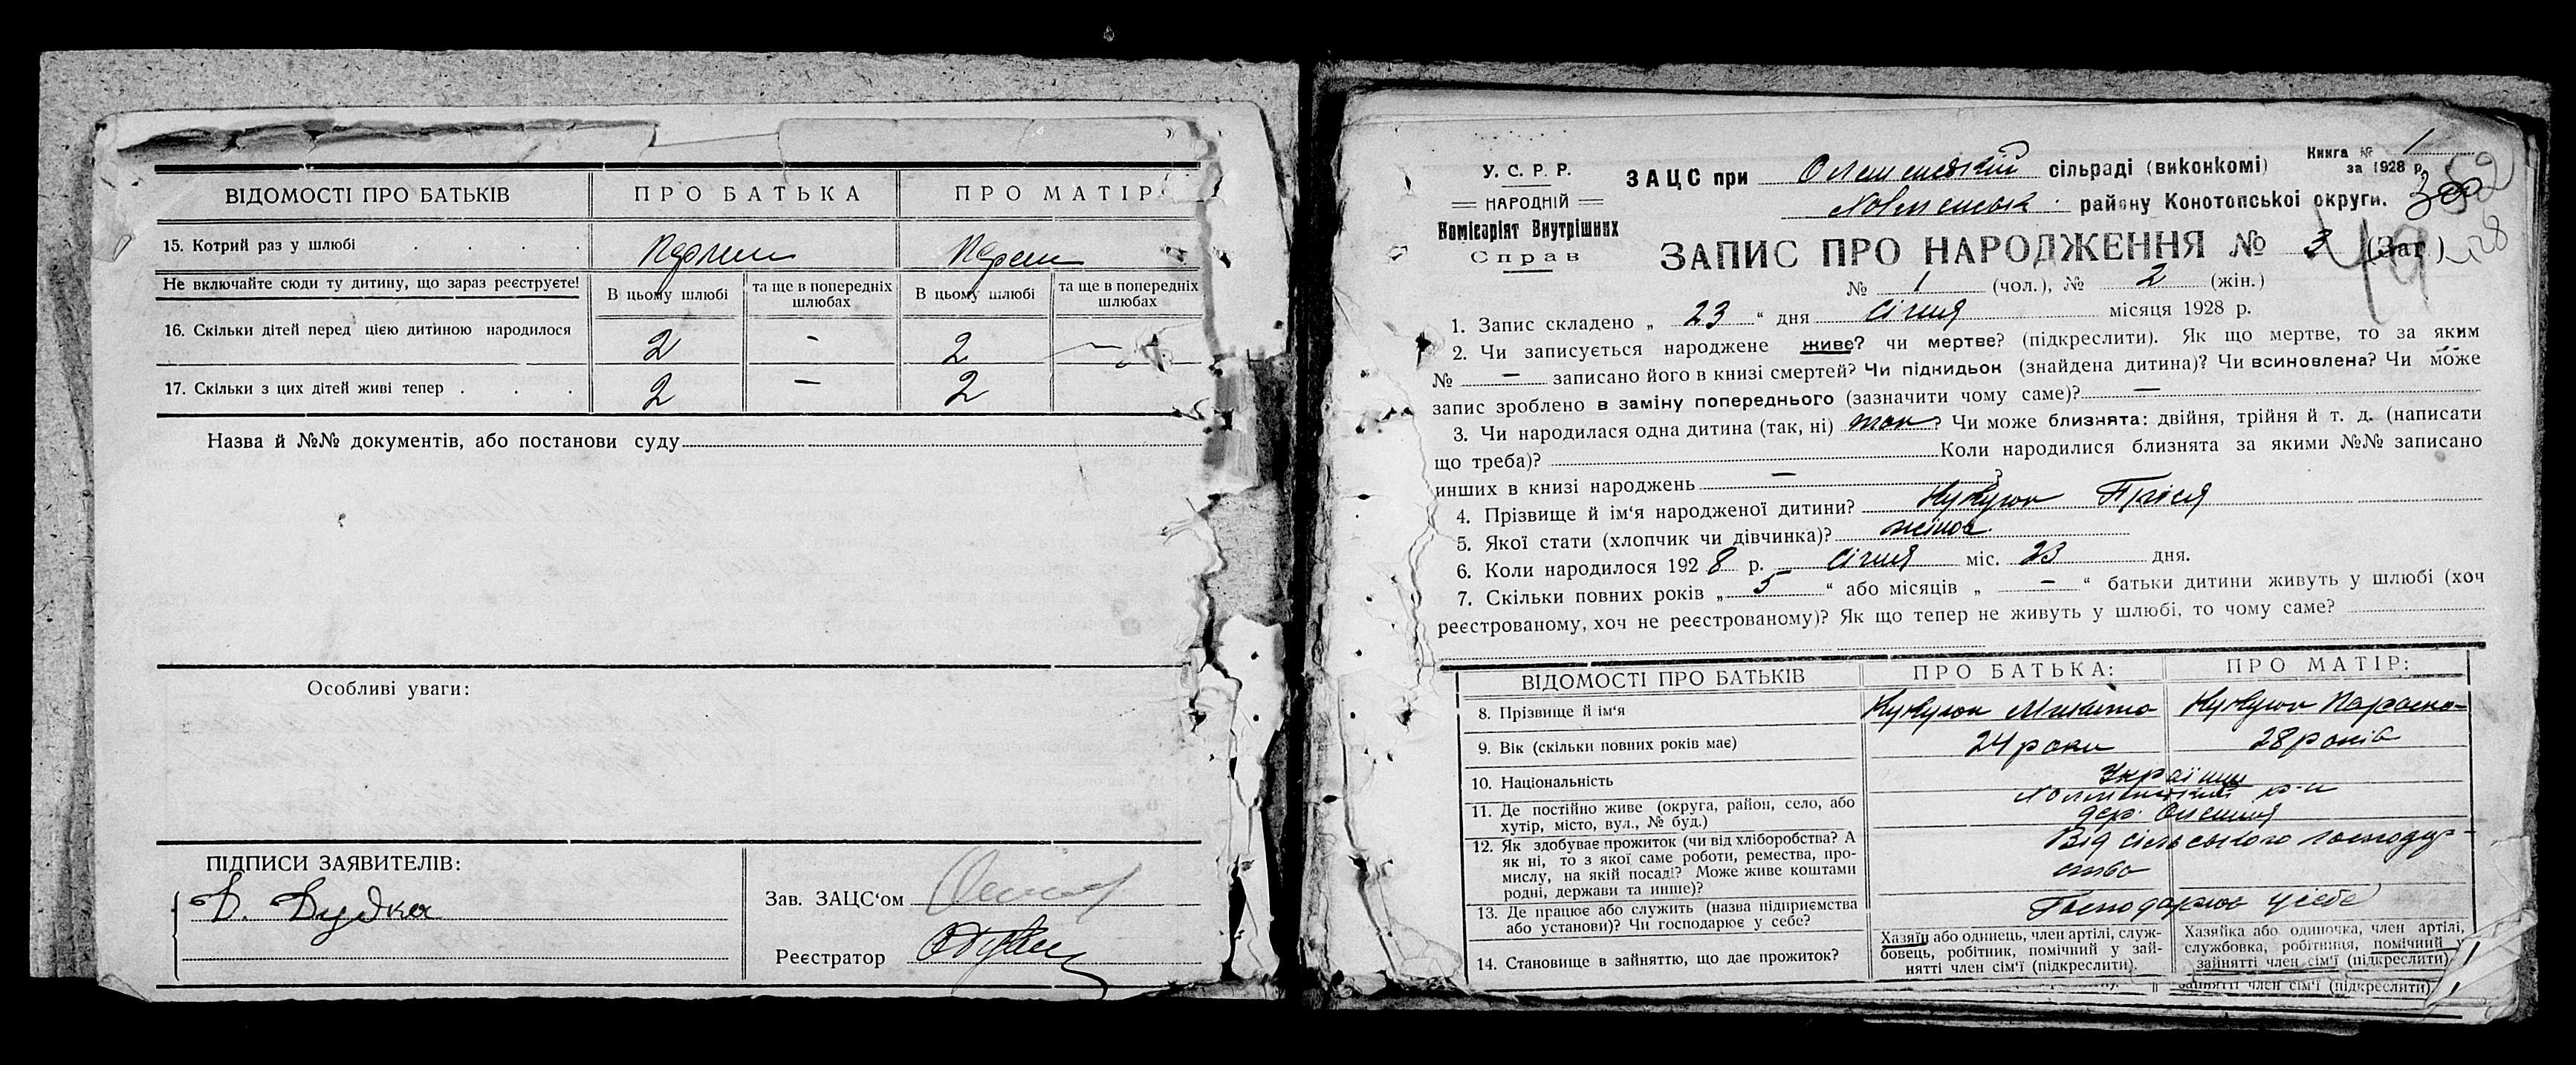 ВІДОМОСТІ ПРО БАТЬКІВ
ПРО БАТЬКА
ПРО МАТІР
15. Котрий раз у шлюбі
Не включайте сюди ту дитину, що зараз реєструєте!
В цьому шлюбі
та ще в попередніх шлюбах
В цьому шлюбі
та ще в попередніх шлюбах
16. Скільки дітей перед цією дитиною народилося 2 - 2 -
17. Скільки з цих дітей живі тепер 2 - 2
Назва й №№ документів, або постанови суду
Особливі уваги:
ПІДПИСИ ЗАЯВИТЕЛІВ:
Д. Дудка
Зав. ЗАЦС‘ом
Реєстратор
У. С. Р. Р.
НАРОДНІЙ
Комісаріят Внутрішних
Справ
ЗАЦС при сільраді (виконкомі)
Книга № 1
за 1928 р.
району Конотопської округи.
ЗАПИС ПРО НАРОДЖЕННЯ № 3 (Заг.)
№ 1 (чол.), № 2 (жін.)
1. Запис складено „ 23 “ дня січня місяця 1928 р.
2. Чи записується народжене живе? чи мертве? (підкреслити). Як що мертве, то за яким
№ — записано його в книзі смертей? Чи підкидьок (знайдена дитина)? Чи всиновлена? Чи може
запис зроблено в заміну попереднього (зазначити чому саме)? —
3. Чи народилася одна дитина (так, ні) так? Чи може близнята: двійня, трійня й т. д. (написати
що треба)? Коли народилися близнята за якими №№ записано
инших в книзі народжень — ?
4. Прізвище й ім‘я народженої дитини? Пріся
5. Якої стати (хлопчик чи дівчинка)? жіноч
6. Коли народилося 1928 р. січня міс. 23 дня.
7. Скільки повних років „ 5 “ або місяців „ — “ батьки дитини живуть у шлюбі (хоч
реєстрованому, хоч не реєстрованому)? Як що тепер не живуть у шлюбі, то чому саме?
ВІДОМОСТІ ПРО БАТЬКІВ
ПРО БАТЬКА:
ПРО МАТІР:
8. Прізвище й ім‘я Микита
9. Вік (скільки повних років має) 24 роки 28 років
10. Національність Українці
11. Де постійно живе (округа, район, село, або
хутір, місто, вул., № буд.)
12. Як здобуває прожиток (чи від хліборобства? А
як ні, то з якої саме роботи, ремества, про-
мислу, на якій посаді? Може живе коштами
родні, держави та инше)?
Від сільського господар-
ства
13. Де працює або служить (назва підприємства
або установи)? Чи господарює у себе?
Господарює у себе
14. Становище в зайняттю, що дає прожиток?
Хазяїн або одинець, член артілі, служ-
бовець, робітник, помічний у зай-
нятті член сім‘ї (підкреслити).
Хазяйка або одиночка, член артілі,
службовка, робітниця, помічний у
зайнятті член сім‘ї (підкреслити)
зайнятті член сім‘ї (підкреслити)